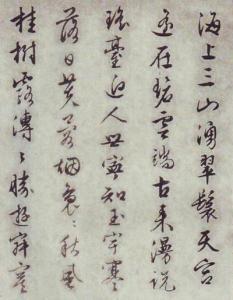 海上三山湧翠鬟天宮
遠在碧雲端古來漫說
瑤臺迥人世寧知玉宇寒
落日芙蓉烟裊裊秋風
桂樹露漙漙勝遊寂寞